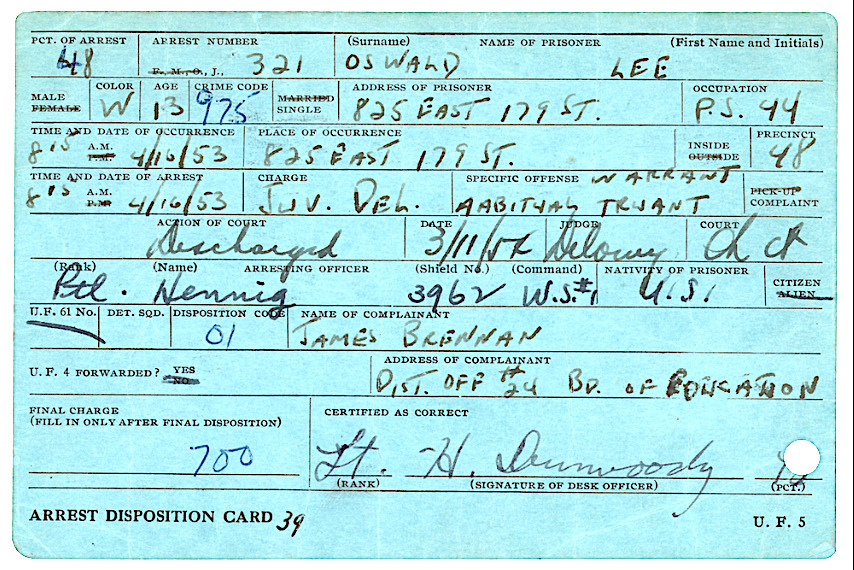 PCT. OF ARREST ARREST NUMBER (Surname) NAME OF PRISONER (First Name and Initials)
48 F. M., O., J., 321 OSWALD LEE
MALE COLOR AGE CRIME CODE MARRIED ADDRESS OF PRISONER OCCUPATION
FEMALE W 13 975 SINGLE 825 EAST 179 ST. P.S. 44
TIME AND DATE OF OCCURRENCE PLACE OF OCCURRENCE INSIDE PRECINCT
8 15 A.M. P.M. 4/16/53 825 EAST 179 ST. OUTSIDE 48
TIME AND DATE OF ARREST CHARGE SPECIFIC OFFENSE WARRANT PICK-UP
8 15 A.M. P.M. 4/16/53 JUV. DEL. AABITUAL TRUANT COMPLAINT
ACTION OF COURT DATE JUDGE COURT
Discharged 3/11/54 Delowy Ch Ct
(Rank) (Name) ARRESTING OFFICER (Shield No.) (Command) NATIVITY OF PRISONER CITIZEN
Ptl. Hennig 3962 W.S.#1 U.S. ALIEN
U.F. 61 No. DET. SQD. DISPOSITION CODE NAME OF COMPLAINANT
01 JAMES BRENNAN
U. F. 4 FORWARDED? YES NO ADDRESS OF COMPLAINANT
DIST. OFF #24 BD. OF EDUCATION
FINAL CHARGE CERTIFIED AS CORRECT
(FILL IN ONLY AFTER FINAL DISPOSITION)
700 Lt. H. Dunwoody
(RANK) (SIGNATURE OF DESK OFFICER) (PCT.)
ARREST DISPOSITION CARD 39 U. F. 5